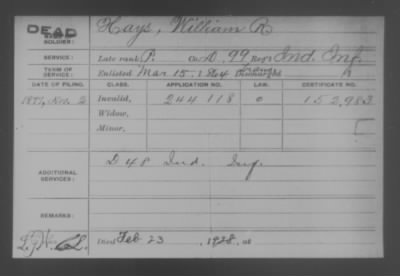 DEAD
Hays, William R
SOLDIER:
SERVICE: Late rank P. Co. D. 99 Reg't Ind. Inf.
TERM OF SERVICE: Enlisted Mar 15, 1864 Discharged
DATE OF FILING. CLASS. APPLICATION NO. LAW. CERTIFICATE NO.
Nov. 2 Invalid, 244118 152,983
Widow,
Minor,
ADDITIONAL SERVICES: D 48 Ind. Inf.
REMARKS:
Died Feb 23, 1928, at